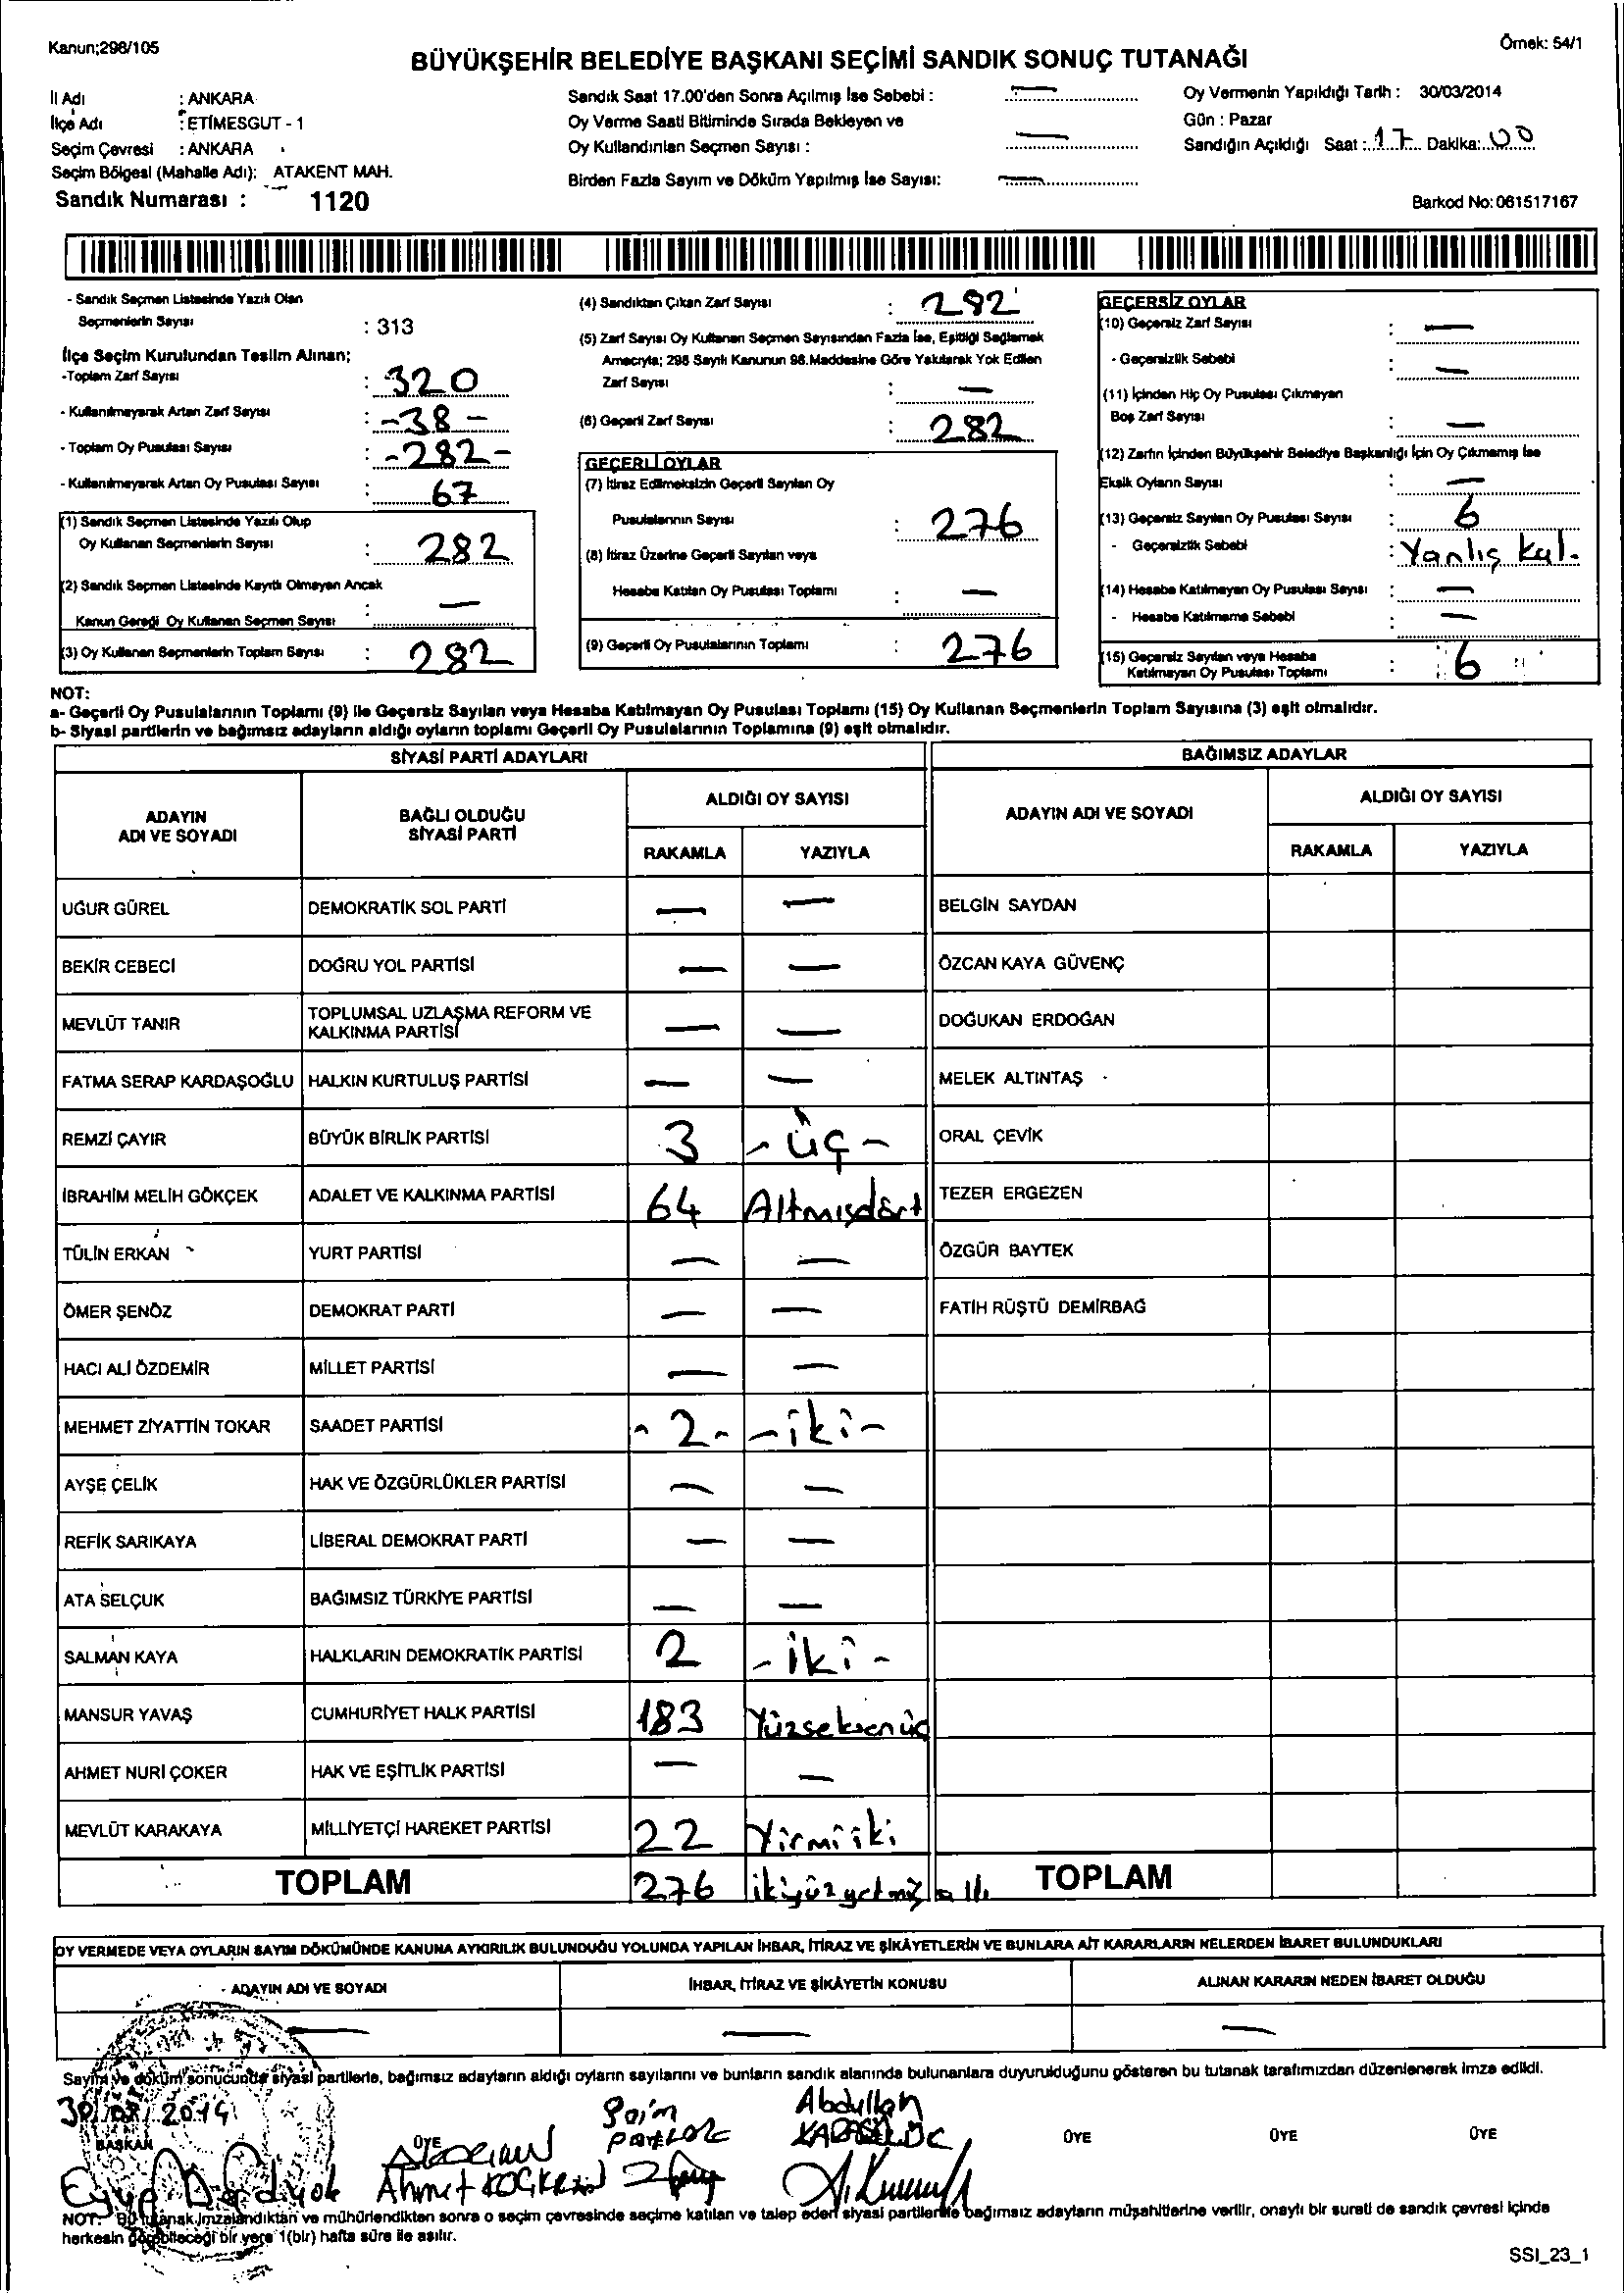 Kanun;298/105
Örnek: 54/1
BÜYÜKŞEHİR BELEDİYE BAŞKANI SEÇİMİ SANDIK SONUÇ TUTANAĞI
İl Adı : ANKARA
İlçe Adı : ETİMESGUT - 1
Seçim Çevresi : ANKARA
Seçim Bölgesi (Mahalle Adı): ATAKENT MAH.
Sandık Numarası : 1120
Sandık Saat 17.00'den Sonra Açılmış İse Sebebi : —
Oy Verme Saati Bitiminde Sırada Bekleyen ve
Oy Kullandırılan Seçmen Sayısı : —
Birden Fazla Sayım ve Döküm Yapılmış İse Sayısı: —
Oy Vermenin Yapıldığı Tarih : 30/03/2014
Gün : Pazar
Sandığın Açıldığı Saat : 17 Dakika: 00
Barkod No: 061517167
- Sandık Seçmen Listesinde Yazılı Olan
Seçmenlerin Sayısı : 313
İlçe Seçim Kurulundan Teslim Alınan;
-Toplam Zarf Sayısı : 320
- Kullanılmayarak Artan Zarf Sayısı : -38-
- Toplam Oy Pusulası Sayısı : -282-
- Kullanılmayarak Artan Oy Pusulası Sayısı : 67
(1) Sandık Seçmen Listesinde Yazılı Olup
Oy Kullanan Seçmenlerin Sayısı : 282
(2) Sandık Seçmen Listesinde Kayıtlı Olmayan Ancak
Kanun Gereği Oy Kullanan Seçmen Sayısı : —
(3) Oy Kullanan Seçmenlerin Toplam Sayısı : 282
(4) Sandıktan Çıkan Zarf Sayısı : 282
(5) Zarf Sayısı Oy Kullanan Seçmen Sayısından Fazla İse, Eşitliği Sağlamak
Amacıyla; 298 Sayılı Kanunun 98.Maddesine Göre Yakılarak Yok Edilen
Zarf Sayısı : —
(6) Geçerli Zarf Sayısı : 282
GEÇERLİ OYLAR
(7) İtiraz Edilmeksizin Geçerli Sayılan Oy
Pusulalarının Sayısı : 276
(8) İtiraz Üzerine Geçerli Sayılan veya
Hesaba Katılan Oy Pusulası Toplamı : —
(9) Geçerli Oy Pusulalarının Toplamı : 276
GEÇERSİZ OYLAR
(10) Geçersiz Zarf Sayısı : —
- Geçersizlik Sebebi : —
(11) İçinden Hiç Oy Pusulası Çıkmayan
Boş Zarf Sayısı : —
(12) Zarfın İçinden Büyükşehir Belediye Başkanlığı İçin Oy Çıkmamış İse
Eksik Oyların Sayısı : —
(13) Geçersiz Sayılan Oy Pusulası Sayısı : 6
- Geçersizlik Sebebi : Yanlış kul.
(14) Hesaba Katılmayan Oy Pusulası Sayısı : —
- Hesaba Katılmama Sebebi : —
(15) Geçersiz Sayılan veya Hesaba
Katılmayan Oy Pusulası Toplamı : 6
NOT:
a- Geçerli Oy Pusulalarının Toplamı (9) ile Geçersiz Sayılan veya Hesaba Katılmayan Oy Pusulası Toplamı (15) Oy Kullanan Seçmenlerin Toplam Sayısına (3) eşit olmalıdır.
b- Siyasi partilerin ve bağımsız adayların aldığı oyların toplamı Geçerli Oy Pusulalarının Toplamına (9) eşit olmalıdır.
SİYASİ PARTİ ADAYLARI
BAĞIMSIZ ADAYLAR
ADAYIN
ADI VE SOYADI
BAĞLI OLDUĞU
SİYASİ PARTİ
ALDIĞI OY SAYISI
RAKAMLA YAZIYLA
ADAYIN ADI VE SOYADI
ALDIĞI OY SAYISI
RAKAMLA YAZIYLA
UĞUR GÜREL DEMOKRATİK SOL PARTİ — — BELGİN SAYDAN
BEKİR CEBECİ DOĞRU YOL PARTİSİ — — ÖZCAN KAYA GÜVENÇ
MEVLÜT TANIR TOPLUMSAL UZLAŞMA REFORM VE
KALKINMA PARTİSİ — — DOĞUKAN ERDOĞAN
FATMA SERAP KARDAŞOĞLU HALKIN KURTULUŞ PARTİSİ — — MELEK ALTINTAŞ
REMZİ ÇAYIR BÜYÜK BİRLİK PARTİSİ 3 - üç - ORAL ÇEVİK
İBRAHİM MELİH GÖKÇEK ADALET VE KALKINMA PARTİSİ 64 Altmışdört TEZER ERGEZEN
TÜLİN ERKAN YURT PARTİSİ — — ÖZGÜR BAYTEK
ÖMER ŞENÖZ DEMOKRAT PARTİ — — FATİH RÜŞTÜ DEMİRBAĞ
HACI ALİ ÖZDEMİR MİLLET PARTİSİ — —
MEHMET ZİYATTİN TOKAR SAADET PARTİSİ - 2 - - iki -
AYŞE ÇELİK HAK VE ÖZGÜRLÜKLER PARTİSİ — —
REFİK SARIKAYA LİBERAL DEMOKRAT PARTİ — —
ATA SELÇUK BAĞIMSIZ TÜRKİYE PARTİSİ — —
SALMAN KAYA HALKLARIN DEMOKRATİK PARTİSİ 2 - iki -
MANSUR YAVAŞ CUMHURİYET HALK PARTİSİ 183 Yüzseksenüç
AHMET NURİ ÇOKER HAK VE EŞİTLİK PARTİSİ — —
MEVLÜT KARAKAYA MİLLİYETÇİ HAREKET PARTİSİ 22 Yirmiiki
TOPLAM 276 ikiyüzyetmişaltı TOPLAM
OY VERMEDE VEYA OYLARIN SAYIM DÖKÜMÜNDE KANUNA AYKIRILIK BULUNDUĞU YOLUNDA YAPILAN İHBAR, İTİRAZ VE ŞİKÂYETLERİN VE BUNLARA AİT KARARLARIN NELERDEN İBARET BULUNDUKLARI
ADAYIN ADI VE SOYADI
İHBAR, İTİRAZ VE ŞİKÂYETİN KONUSU
ALINAN KARARIN NEDEN İBARET OLDUĞU
— — —
Sayım ve döküm sonucunda siyasi partilerle, bağımsız adayların aldığı oyların sayılarını ve bunların sandık alanında bulunanlara duyurulduğunu gösteren bu tutanak tarafımızdan düzenlenerek imza edildi.
30/03/2014
Abdullah
BAŞKAN ÜYE ÜYE ÜYE ÜYE
Eyup
Ahmet
NOT: Bu tutanak imzalandıktan ve mühürlendikten sonra o seçim çevresinde seçime katılan ve talep eden siyasi partilerle bağımsız adayların müşahitlerine verilir, onaylı bir sureti de sandık çevresi içinde
herkesin görebileceği bir yere 1(bir) hafta süre ile asılır.
SSI_23_1